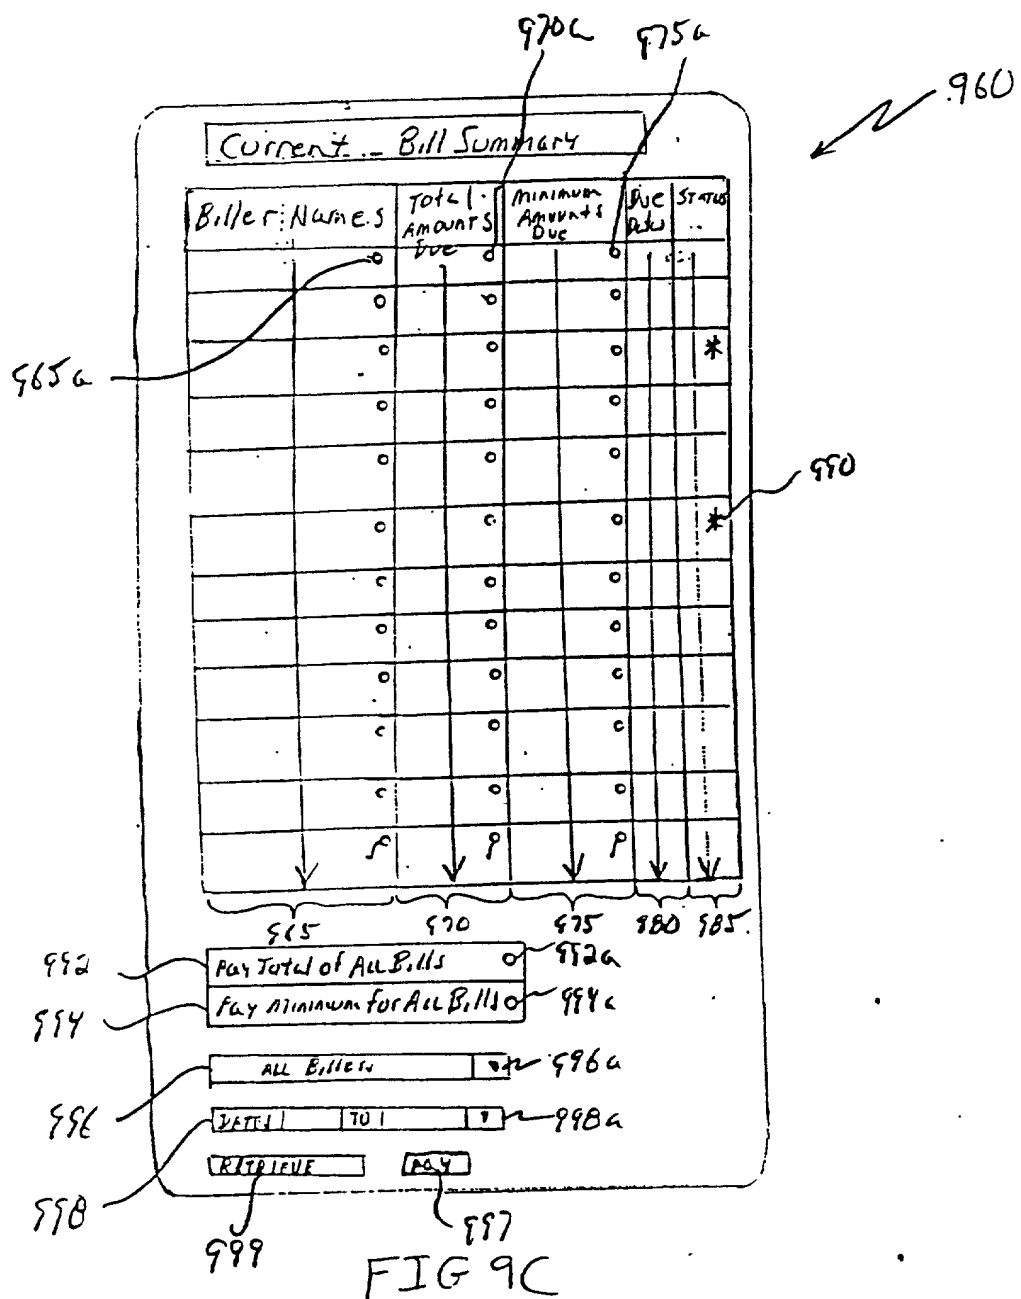 970a 975a
960
Current Bill Summary
Biller Names Total Amounts Due Minimum Amounts Due Due Dates Status
965a
*
* 990
965 970 975 980 985
992 Pay Total of All Bills 992a
994 Pay Minimum for All Bills 994a
996 All Billers 996a
998 DATES TO 998a
RETRIEVE PAY
999 997
FIG 9C